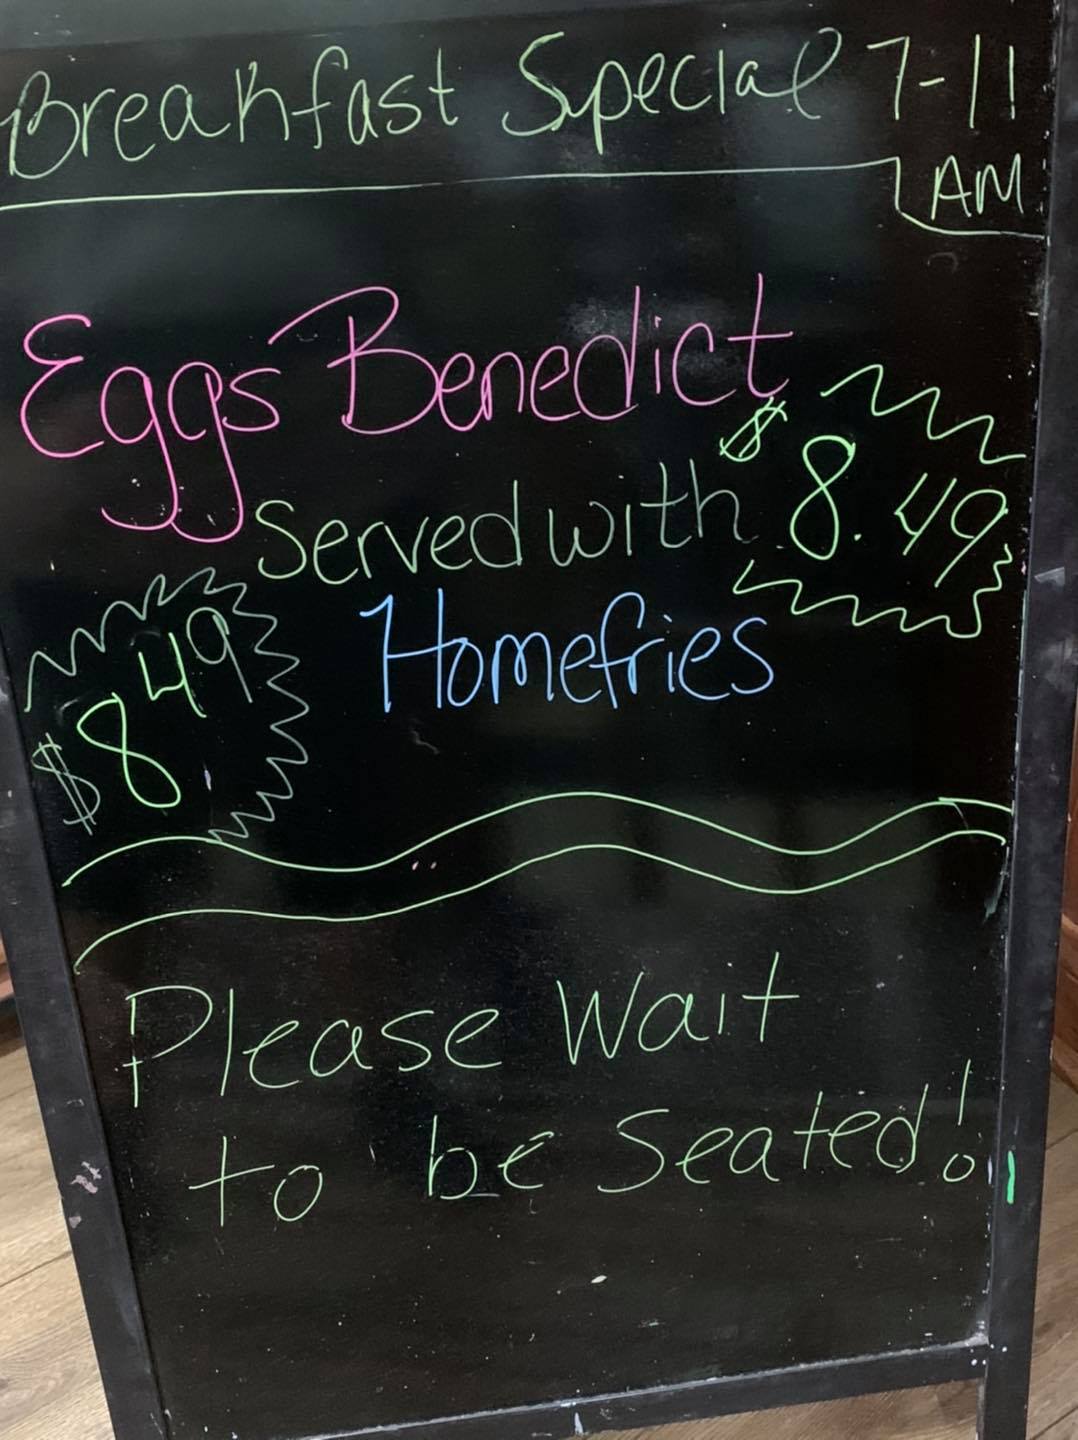 Breakfast Special 7-11
AM
Eggs Benedict
$8.49
Served with
Homefries
$8.49
Please Wait
to be Seated!